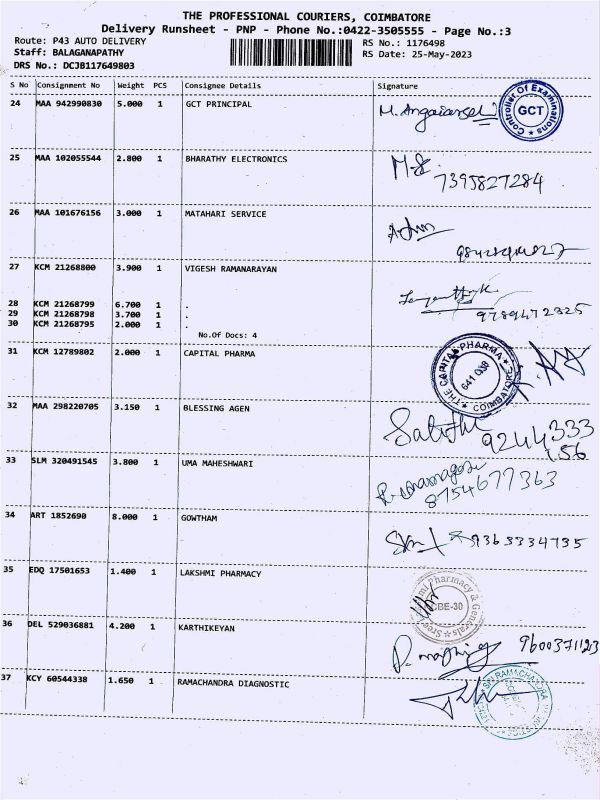 THE PROFESSIONAL COURIERS, COIMBATORE
Delivery Runsheet - PNP - Phone No.:0422-3505555 - Page No.:3
Route: P43 AUTO DELIVERY RS No.: 1176498
Staff: BALAGANAPATHY RS Date: 25-May-2023
DRS No.: DCJB117649803
S No Consignment No Weight PCS Consignee Details Signature
24 MAA 942990830 5.000 1 GCT PRINCIPAL
Controller Of Examinations GCT
25 MAA 102055544 2.800 1 BHARATHY ELECTRONICS
7395827284
26 MAA 101676156 3.000 1 MATAHARI SERVICE
27 KCM 21268800 3.900 1 VIGESH RAMANARAYAN
28 KCM 21268799 6.700 1 .
29 KCM 21268798 3.700 1 .
30 KCM 21268795 2.000 1 .
9789472325
No.Of Docs: 4
31 KCM 12789802 2.000 1 CAPITAL PHARMA
THE CAPITAL PHARMA COIMBATORE 641 008
32 MAA 298220705 3.150 1 BLESSING AGEN
9244333
156
33 SLM 320491545 3.800 1 UMA MAHESHWARI
8754677363
34 ART 1852690 8.000 1 GOWTHAM
9363334735
35 EDQ 17501653 1.400 1 LAKSHMI PHARMACY
Pharmacy & Generals CBE-30
36 DEL 529036881 4.200 1 KARTHIKEYAN
37 KCY 60544338 1.650 1 RAMACHANDRA DIAGNOSTIC
SRI RAMACHANDRA